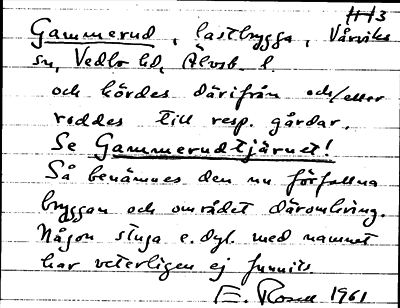 Gammerud, lastbrygga, Vårviks
sn, Vedbo hd, Älvsb. l.
och kördes därifrån och/eller
roddes till resp. gårdar.
Se Gammerudtjärnet!
Så benämnes den nu förfallna
bryggan och området däromkring.
Någon stuga e.dyl. med namnet
har veterligen ej funnits.
E. Rosell 1961